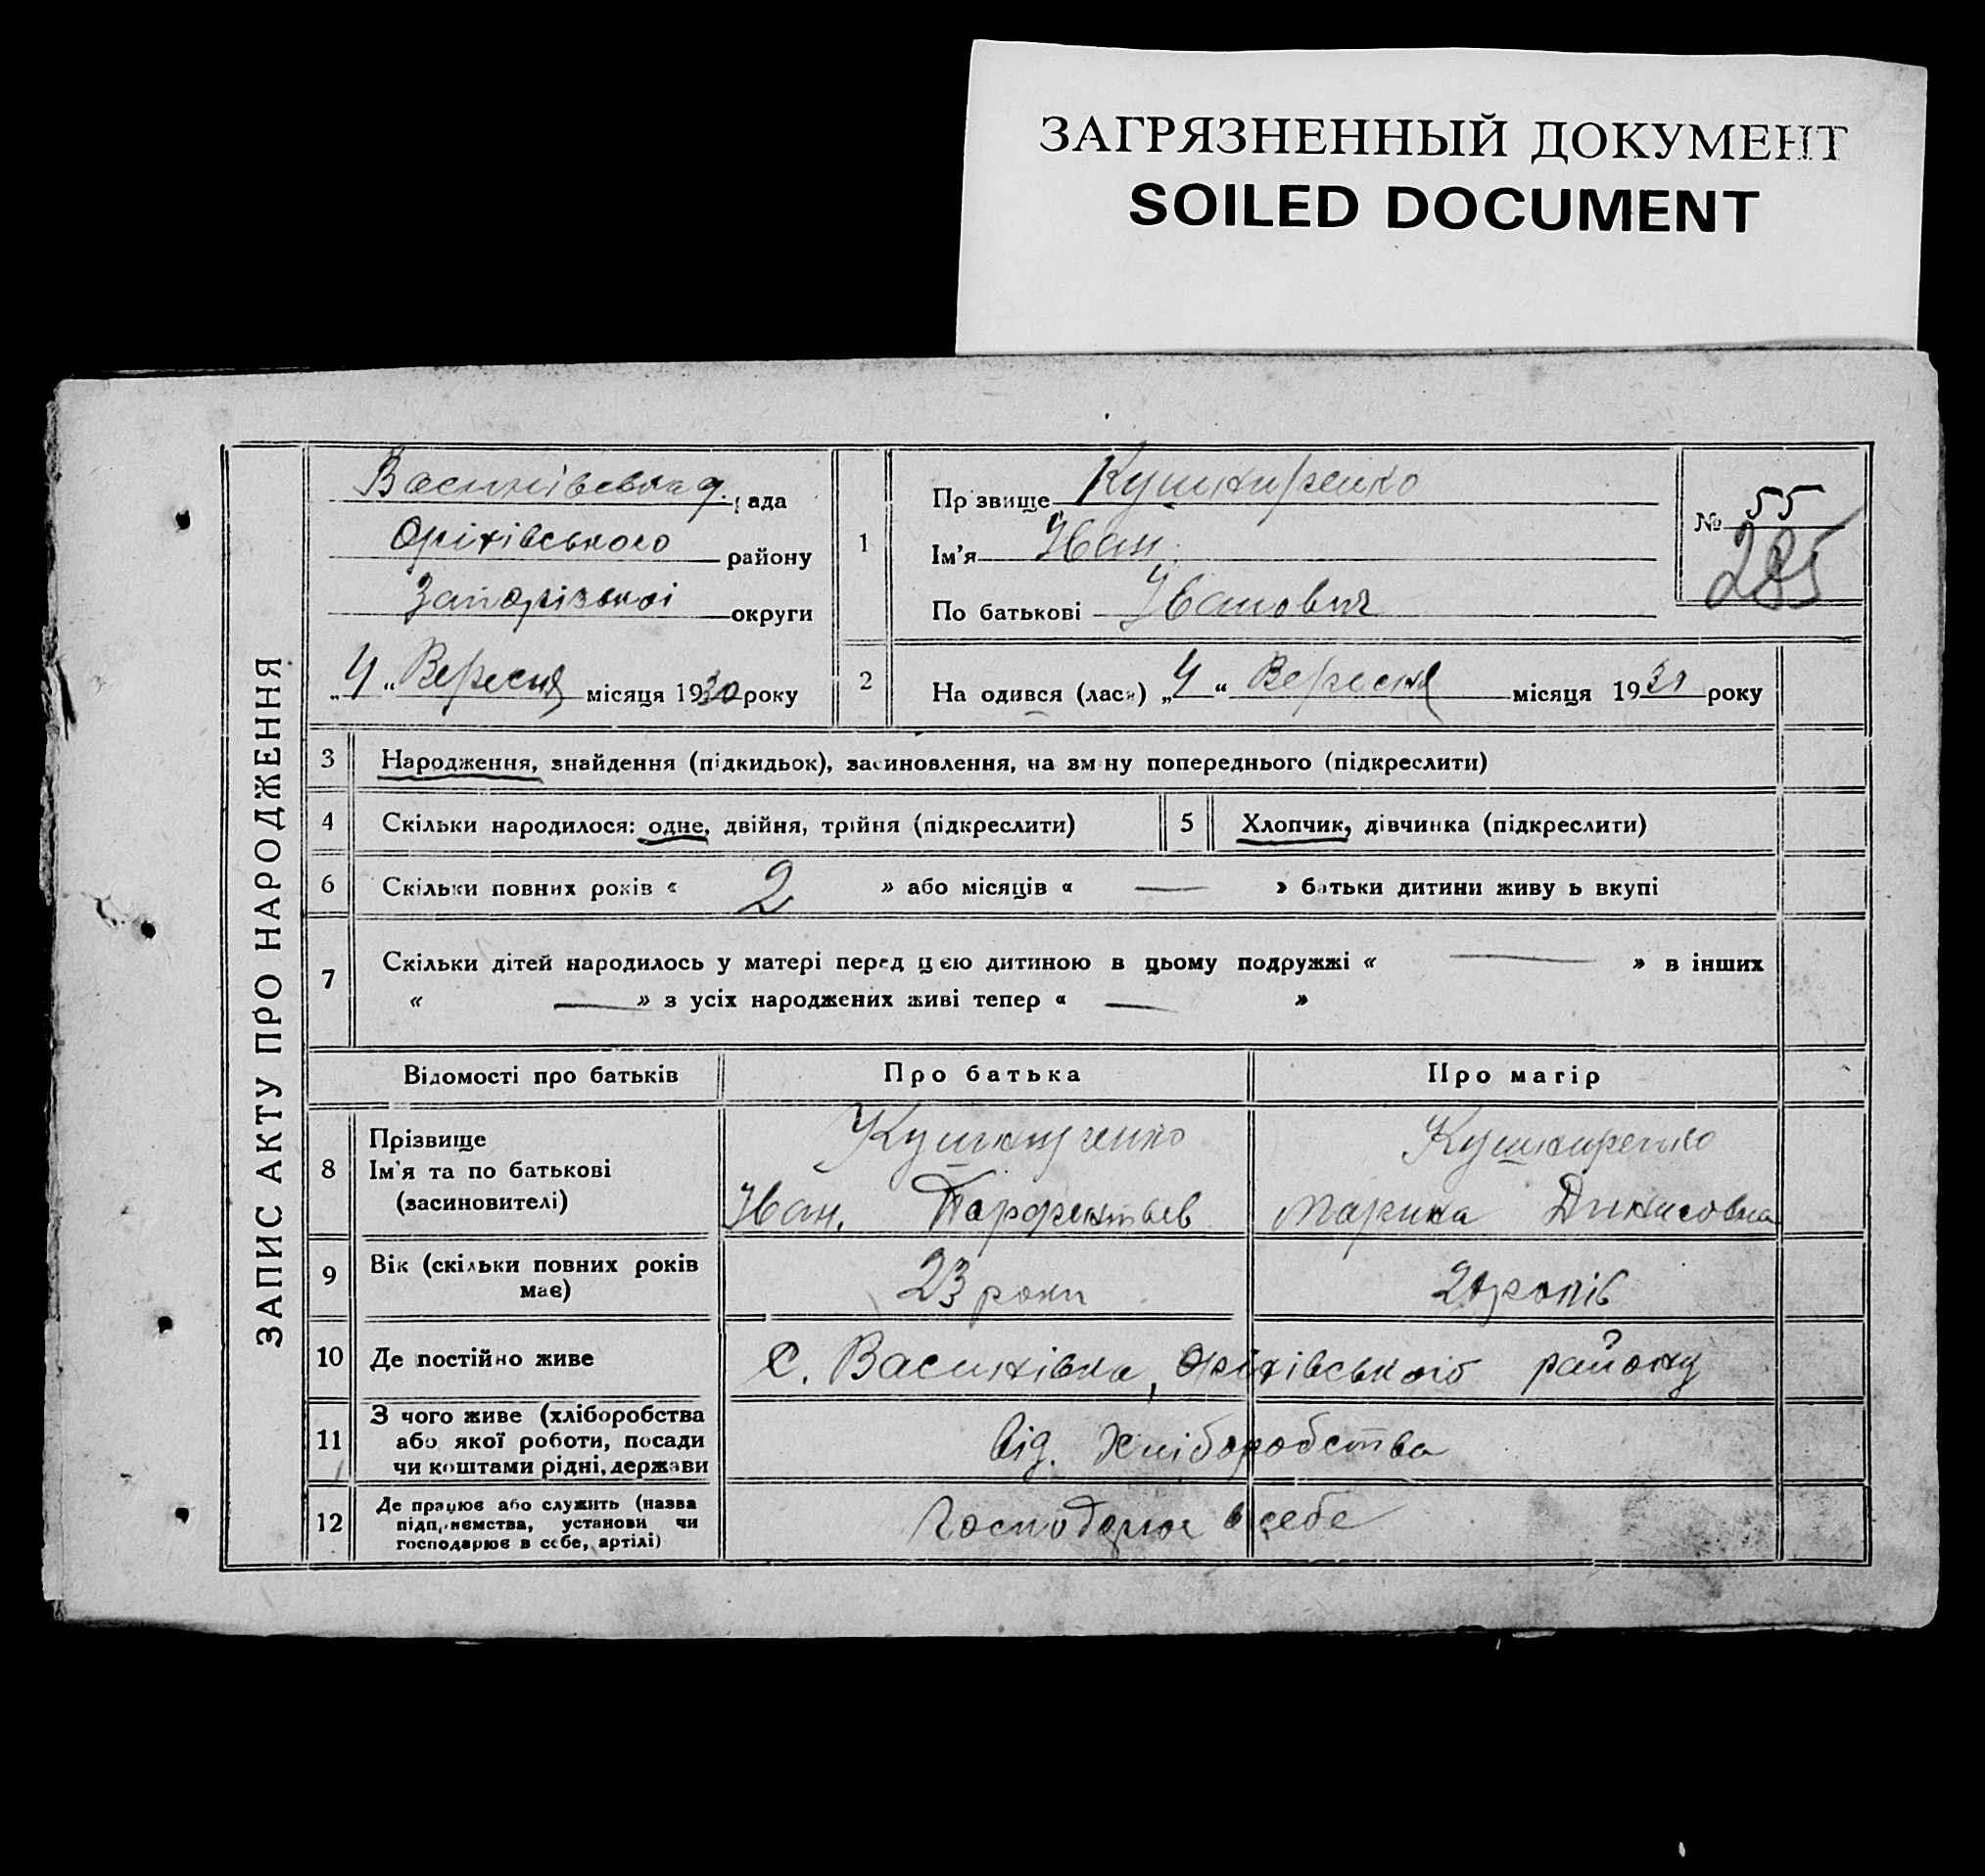 ЗАГРЯЗНЕННЫЙ ДОКУМЕНТ
SOILED DOCUMENT
ЗАПИС АКТУ ПРО НАРОДЖЕННЯ
рада
Оріхівського району
Запорізької округи
„4“ Вересня місяця 1930 року
1
Прізвище Кушниренко
Ім'я Иван
По батькові Иванович
№ 55
285
2
На одився (лась) „4“ Вересня місяця 1930 року
3 Народження, знайдення (підкидьок), засиновлення, на зміну попереднього (підкреслити)
4 Скільки народилося: одне, двійня, трійня (підкреслити)
5 Хлопчик, дівчинка (підкреслити)
6 Скільки повних років « 2 » або місяців « — » батьки дитини живуть вкупі
7 Скільки дітей народилось у матері перед цією дитиною в цьому подружжі « — » в інших
« — » з усіх народжених живі тепер « — »
Відомості про батьків Про батька Про матір
8 Прізвище
Ім'я та по батькові
(засиновителі)
Кушниренко
Иван. Парфентьев
Кушниренко
Марина Динисовна
9 Вік (скільки повних років
має)
23 роки
років
10 Де постійно живе
с. Василівка, Оріхівського району
11 З чого живе (хліборобства
або якої роботи, посади
чи коштами рідні, держави
від. Хліборобства
12 Де працює або служить (назва
підприємства, установи чи
господарює в себе, артілі)
Господарює в себе